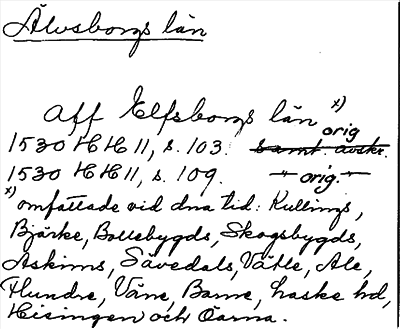 Älvsborgs län
Aff Elfsborgs län x)
1530 HH 11, s. 103. samt. avskr. orig
1530 HH 11, s. 109. -"- orig. -"-
x) omfattade vid dna tid: Kullings,
Bjärke, Bollebygds, Skogsbygds,
Askims, Sävedals, Vätle, Ale,
Flundre, Väne, Barne, Laske hd,
Hisingen och Öarna.